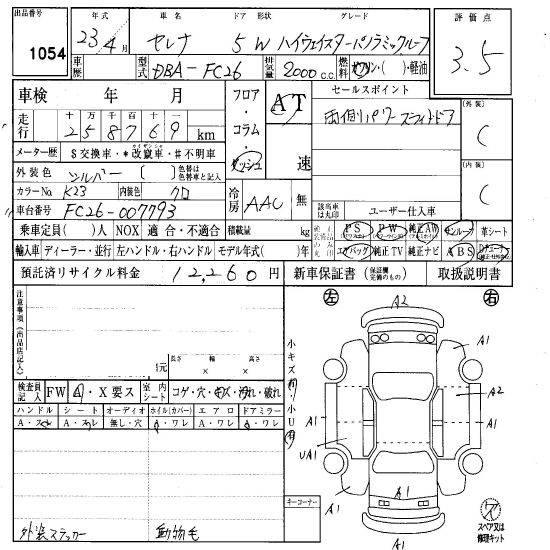 出品番号 年式 車名 ドア 形状 グレード 評価点
1054 23年 4月 セレナ 5 W ハイウェイスターパノラミックルーフ 3.5
車歴 型式 DBA-FC26 排気量 2000 c.c. 燃料 ガソリン・( )・軽油
車検 年 月 フロア・コラム・ダッシュ AT 速 セールスポイント
走行 十 万 千 百 十 一 2 5 8 7 6 9 km 両側パワースライドドア (外装) C
メーター歴 $交換車・*改竄車・#不明車
外装色 シルバー [色替] 色替は色替車と記入 (内装) C
カラーNo. K23 内装色 クロ 冷房 AAC 無
車台番号 FC26-007793 該当車は丸印 ユーザー仕入車
乗車定員( )人 NOX 適合・不適合 積載量 kg PS PW 純正AW サンルーフ 革シート
輸入車 ディーラー・並行 左ハンドル・右ハンドル モデル年式( )年 エアバッグ 純正TV 純正ナビ ABS
預託済リサイクル料金 12,260円 新車保証書 (保証欄完備のもの) 取扱説明書
注意事項(出品店記入)
左 右
A2
A1 A1
小キズ有・小U有
長さ × 幅 × 高さ
検査員記入 FW A・X要ス 室内シート コゲ・穴・キズ・汚れ・破れ
A2
ハンドル シート オーディオ ホイル(カバー) エアロ ドアミラー
A・スレ A・スレ 無し・穴 A・ワレ A・ワレ A・ワレ
A1 A1
UA1
A1
キーコーナー
外装ステッカー 動物毛
A1 A1
スペア又は修理キット